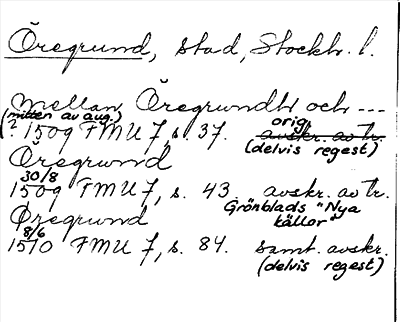 Öregrund, stad, Stockh. l.
mellan Öregrundh och ---
(mitten av aug.)
? 1509 FMU 7, s. 37. orig. avskr. av tr.
(delvis regest)
Öregrund
30/8
1509 FMU 7, s. 43 avskr. av tr.
Grönblads "Nya
källor"
Øregrund
8/6
1510 FMU 7, s. 84. samt. avskr.
(delvis regest)